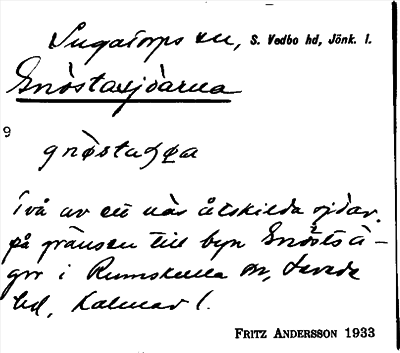 Ingatorps sn, S. Vedbo hd, Jönk. l.
Gnöstasjöarna
9
Två av ett näs åtskilda sjöar.
på gränsen till byn
i Rumskulla sn, Sevede
hd, Kalmar l.
FRITZ ANDERSSON 1933